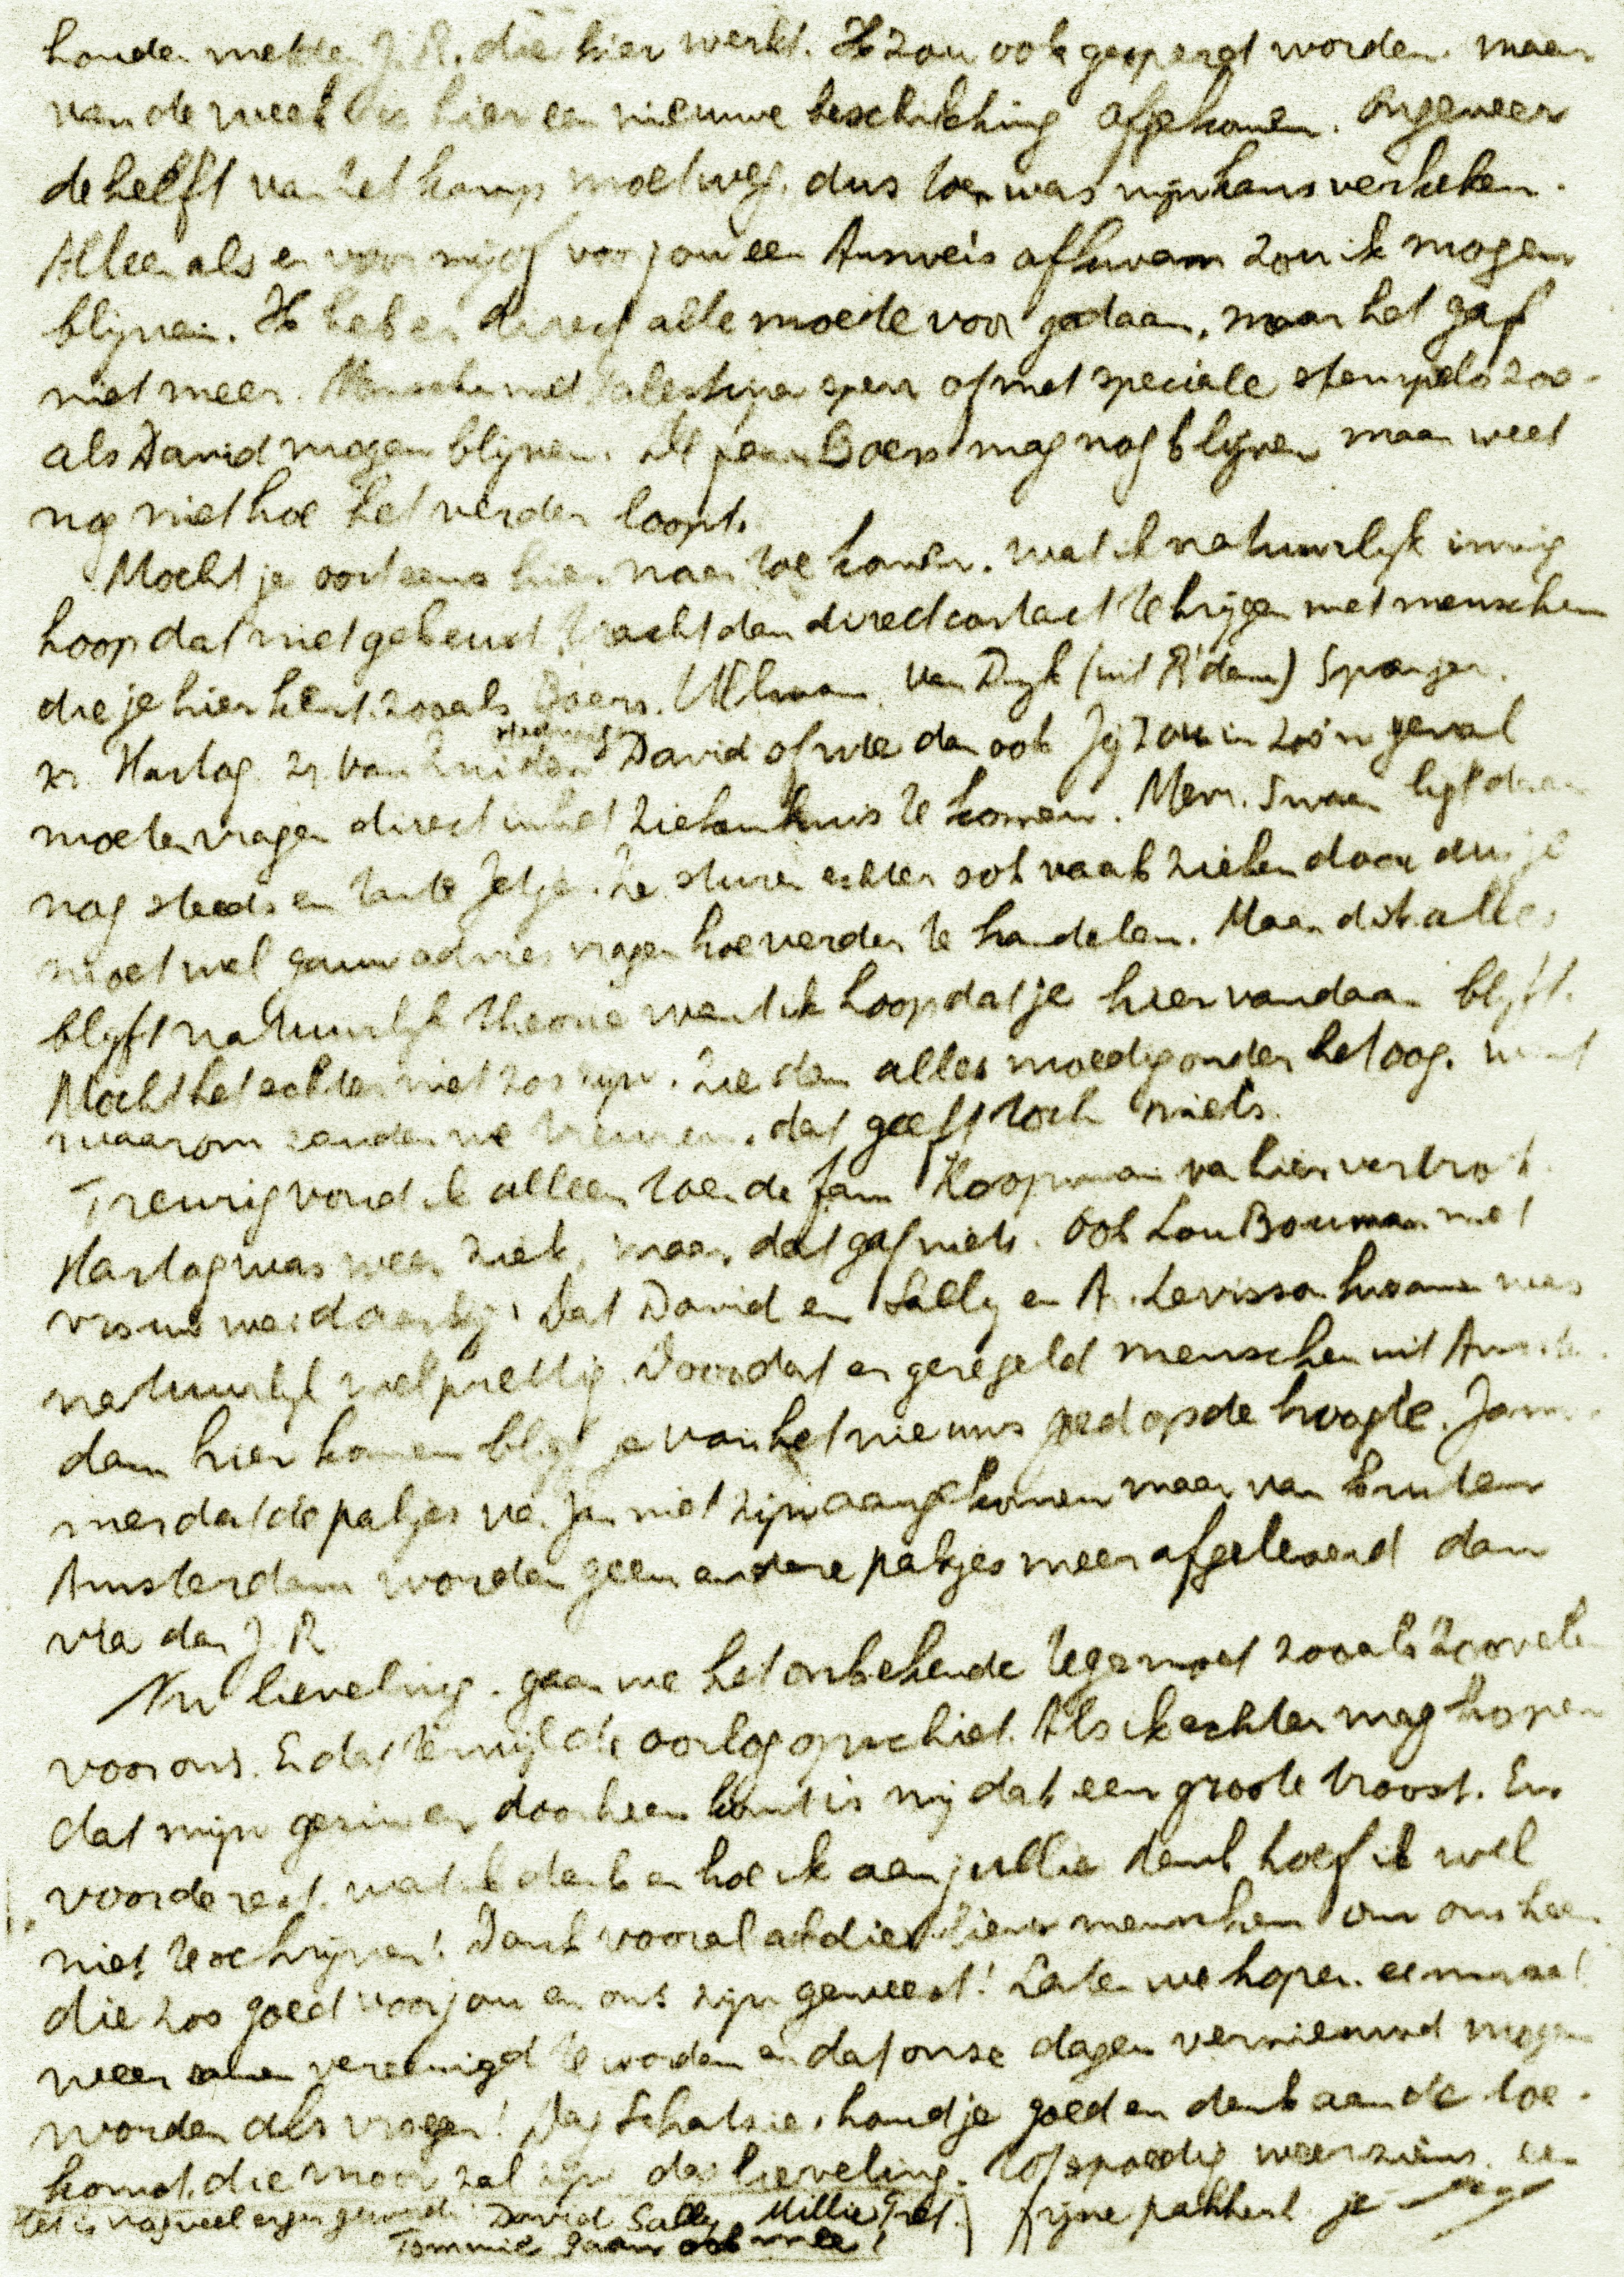 houden met den J.R. die hier werkt. Ik zou ook gesperd worden. maar
van de week is hier een nieuwe beschikking afgekomen. Ongeveer
de helft van het kamp moet weg. dus toen was mijn kans verkeken.
Alleen als er voor mij of voor jou een Ausweis afkwam zou ik mogen
blijven. Ik heb er direct alle moeite voor gedaan, maar het gaf
niet meer. Menschen met Palestina sper of met speciale stempels zoo-
als David mogen blijven. De fam Boers mag nog blijven maar weet
nog niet hoe het verder loopt.
Mocht je ooit eens hier naar toe komen. wat ik natuurlijk innig
hoop dat niet gebeurt, tracht dan direct contact te krijgen met menschen
die je hier kent. zooals Boers. Ullman. van Dijk (uit R'dam) Spanjer.
zr. Hartog zr. van David of wie dan ook Jij zou in zoo'n geval
moeten vragen direct in het ziekenhuis te komen. Mevr. Swaan ligt daar
nog steeds en tante Jetje. Ze sturen echter ook vaak zieken door dus je
moet wel gauw advies vragen hoe verder te handelen. Maar dit alles
blijft natuurlijk theorie want ik hoop dat je hier vandaan blijft.
Mocht het echter niet zoo zijn. zie dan alles moedig onder het oog. want
waarom zouden we treuren. dat geeft toch niets.
Treurig vond ik alleen toen de fam Koopman van hier vertrok.
Hartog was weer ziek, maar dat gaf niets. Ook Lou Bouman met
vrouw was daarbij! Dat David en Sally en A. Levisson kwamen was
natuurlijk wel prettig. Doordat er geregeld menschen uit Amster-
dam hier komen blijf je van het nieuws goed op de hoogte. Jam-
mer dat de pakjes van Jan niet zijn aangekomen maar van buiten
Amsterdam worden geen andere pakjes meer afgeleverd dan
via den J.R
Nu lieveling. gaan we het onbekende tegemoet zooals zoovelen
voor ons. En dat terwijl de oorlog opschiet. Als ik echter mag hopen
dat mijn gezin er doorheen komt is mij dat een groote troost. En
voor de rest. wat ik denk en hoe ik aan jullie denk hoef ik wel
niet te schrijven! Dank vooral al die lieve menschen om ons heen
die zoo goed voor jou en ons zijn geweest! Laten we hopen eenmaal
weer samen vereenigd te worden en dat onze dagen vernieuwd mogen
worden als vroeger! Dag Schatsie, houd je goed en denk aan de toe-
komst. die mooi zal zijn dag lieveling. Tot spoedig weerziens. een
Het is nog veel erger geworden David Sally Millie Gret. fijne pakkerd je
Tommie gaan ook mee!